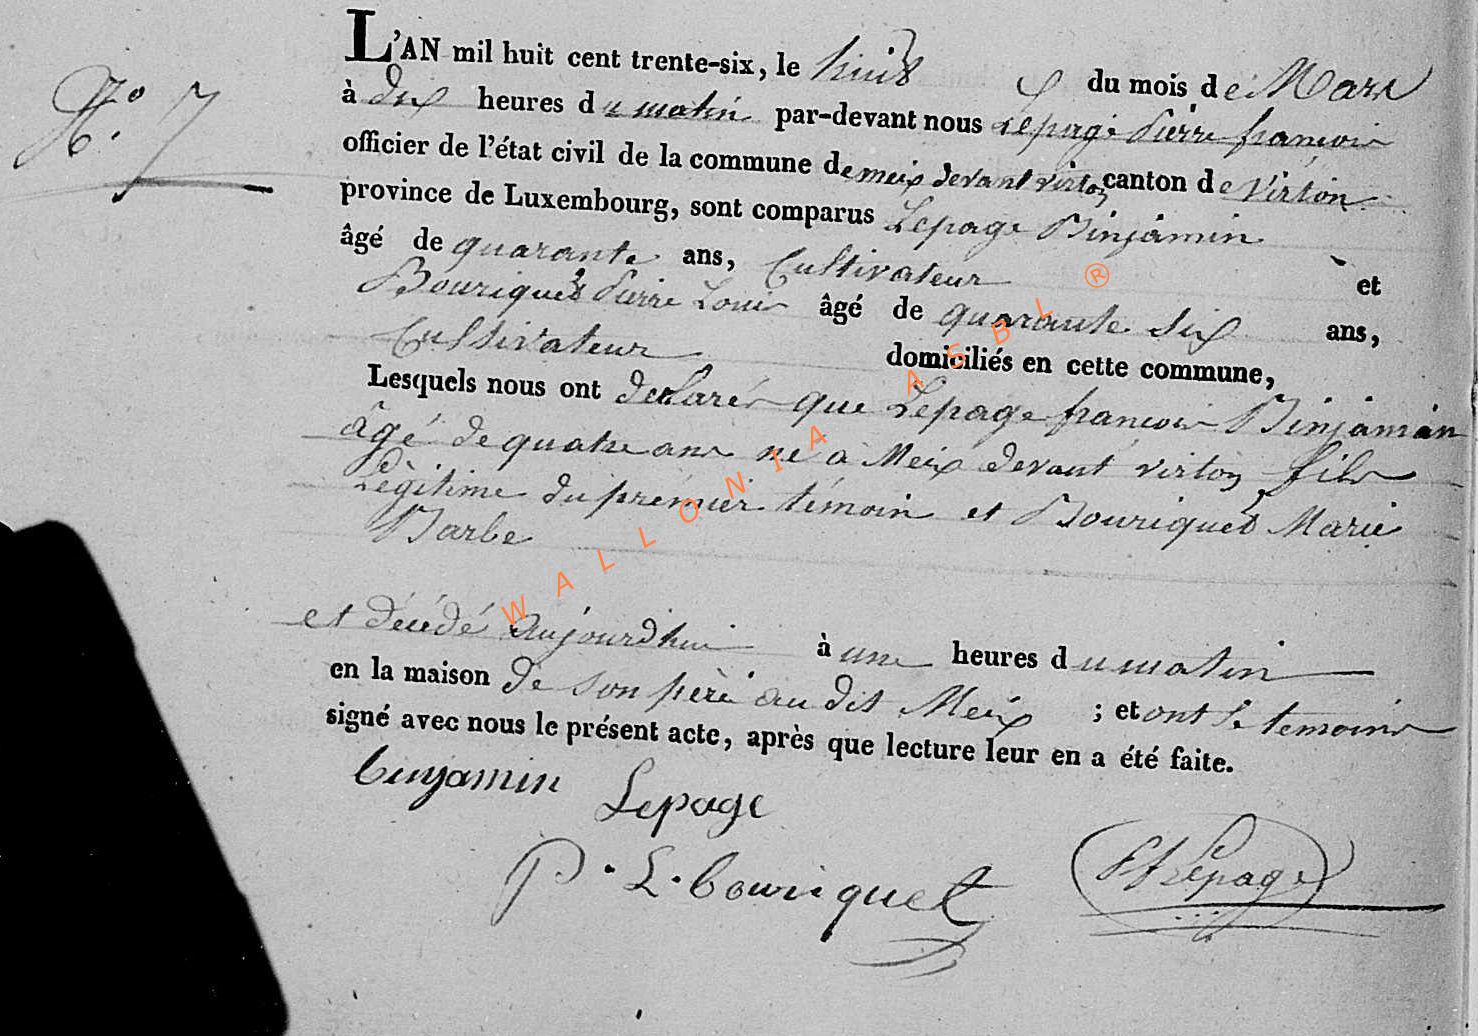 N.° 7
L'AN mil huit cent trente-six, le huit du mois de Mars
à dix heures du matin par-devant nous Lepage Pierre françois
officier de l'état civil de la commune de meix devant virton canton de Virton
province de Luxembourg, sont comparus Lepage Binjamin
âgé de quarante ans, Cultivateur et
Bouriquet Pierre Louis âgé de quarante six ans,
Cultivateur domiciliés en cette commune,
Lesquels nous ont déclarés que Lepage françois Binjamin
âgé de quatre ans né à Meix devant virton, fils
Légitime du premier témoin et Bouriquet Marie
Barbe
et décédé aujourdhui à une heures du matin
en la maison de son père au dit Meix ; et ont le temoins
signé avec nous le présent acte, après que lecture leur en a été faite.
benjamin Lepage
P. L. bouriquet
Pf Lepage
WALLONIA ASBL ®